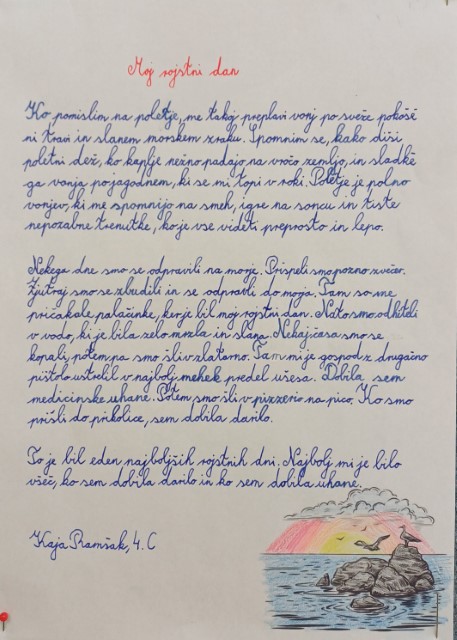 Moj rojstni dan
Ko pomislim na poletje, me takoj preplavi vonj po sveže pokoše
ni travi in slanem morskem zraku. Spomnim se, kako diši
poletni dež, ko kaplje nežno padajo na vročo zemljo, in sladke
ga vonja po jagodnem, ki se mi topi v roki. Poletje je polno
vonjev, ki me spomnijo na smeh, igre na soncu in tiste
nepozabne trenutke, ko je vse videti preprosto in lepo.
Nekega dne smo se odpravili na morje. Prispeli smo pozno zvečer.
Zjutraj smo se zbudili in se odpravli do moja. Tam so me
pričakale palačinke, ker je bil moj rojstni dan. Nato smo odhiteli
v vodo, ki je bila zelo mrzla in slana. Nekaj časa smo se
kopali, potem pa smo šli v zlatarno. Tam mi je gospod z drugačno
pištolo ustrelil v najbolj mehek predel ušesa. Dobila sem
medicinske uhane. Potem smo šli v pizzerio na pico. Ko smo
prišli do prikolice, sem dobila darilo.
To je bil eden najboljših rojstnih dni. Najbolj mi je bilo
všeč, ko sem dobila darilo in ko sem dobila uhane.
Kaja Ramšak, 4. C